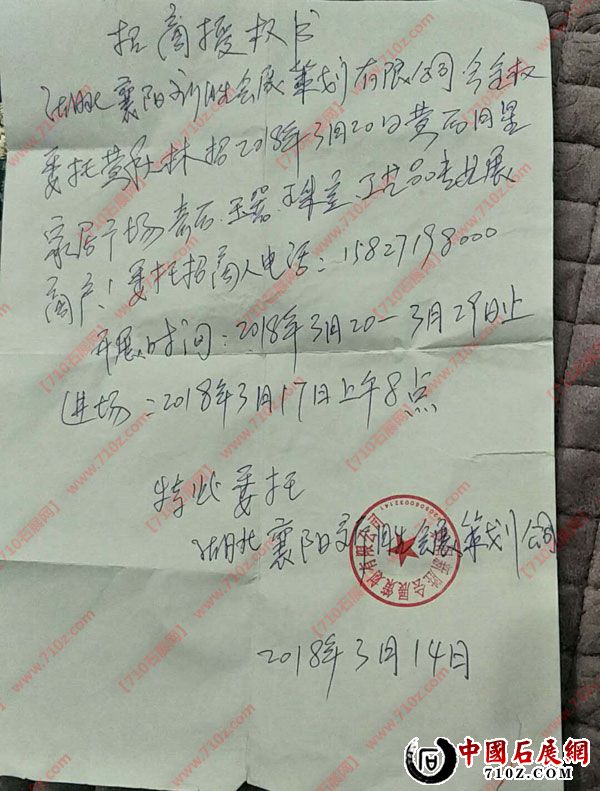 招商授权书
湖北襄阳新旭会展策划有限公司今全权
委托黄胜林招2018年3月20日黄石月星
家居广场奇石、玉器、珠宝、工艺品专业展
商户！委托招商人电话：15827198000
开展时间：2018年3月20—3月29日止
进场：2018年3月17日上午8点
特此委托
湖北襄阳新旭会展策划公司
会展策划有限公司
2018年3月14日
【710石展网】 www.710z.com
中國石展網
710Z.COM